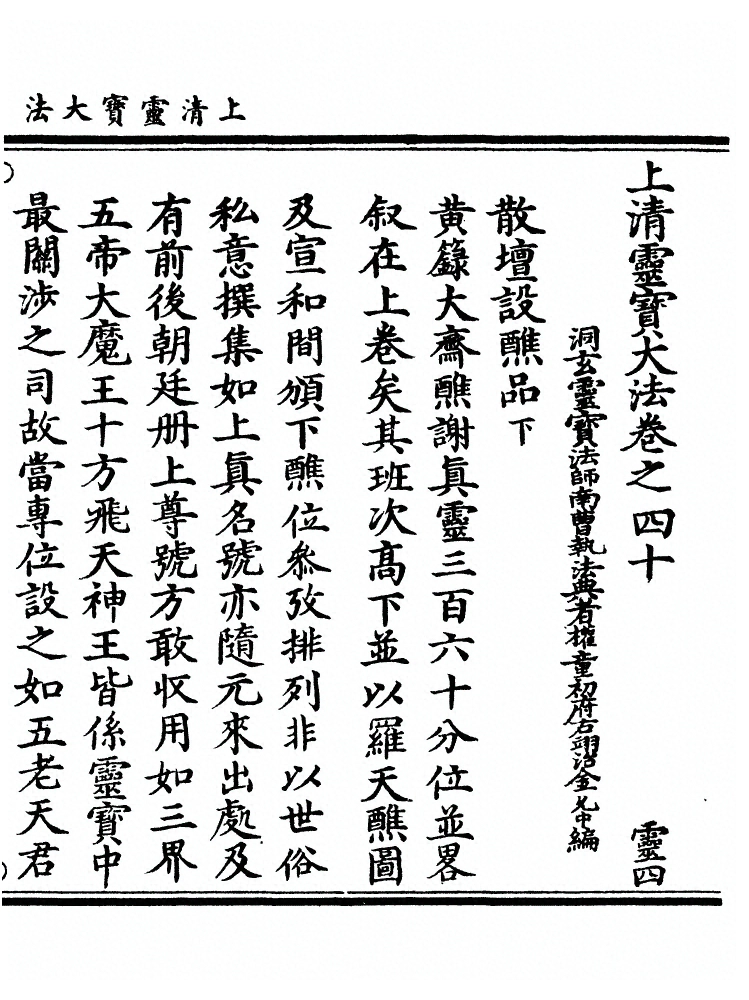 上清靈寶大法
上清靈寶大法卷之四十　靈四
洞玄靈寶法師南曹執法典者權童初府右翊治金允中編
散壇設醮品下
黃籙大齋醮謝眞靈三百六十分位並畧
叙在上卷矣其班次高下並以羅天醮圖
及宣和間頒下醮位叅攷排列非以世俗
私意撰集如上眞名號亦隨元來出處及
有前後朝廷册上尊號方敢収用如三界
五帝大魔王十方飛天神王皆係靈寶中
最關涉之司故當專位設之如五老天君